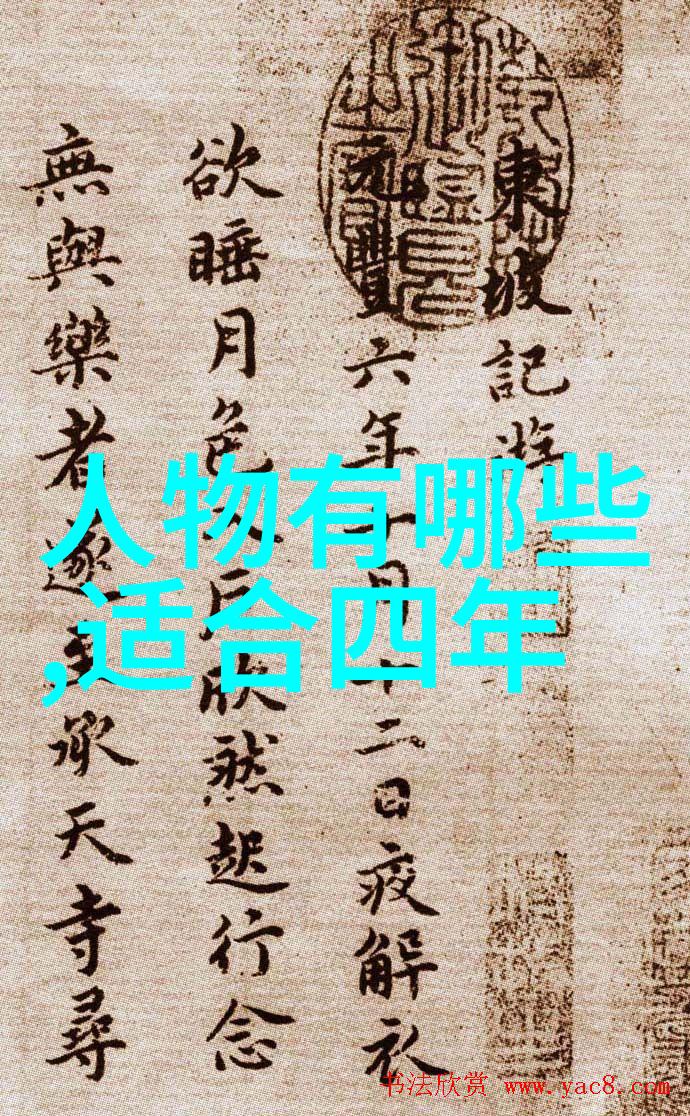 東坡記游
元豐六年十月十二日夜解衣
欲睡月色入戶欣然起行念
無與樂者遂至承天寺尋
人物有哪些
,适合四年
书法欣赏 www.yac8.com